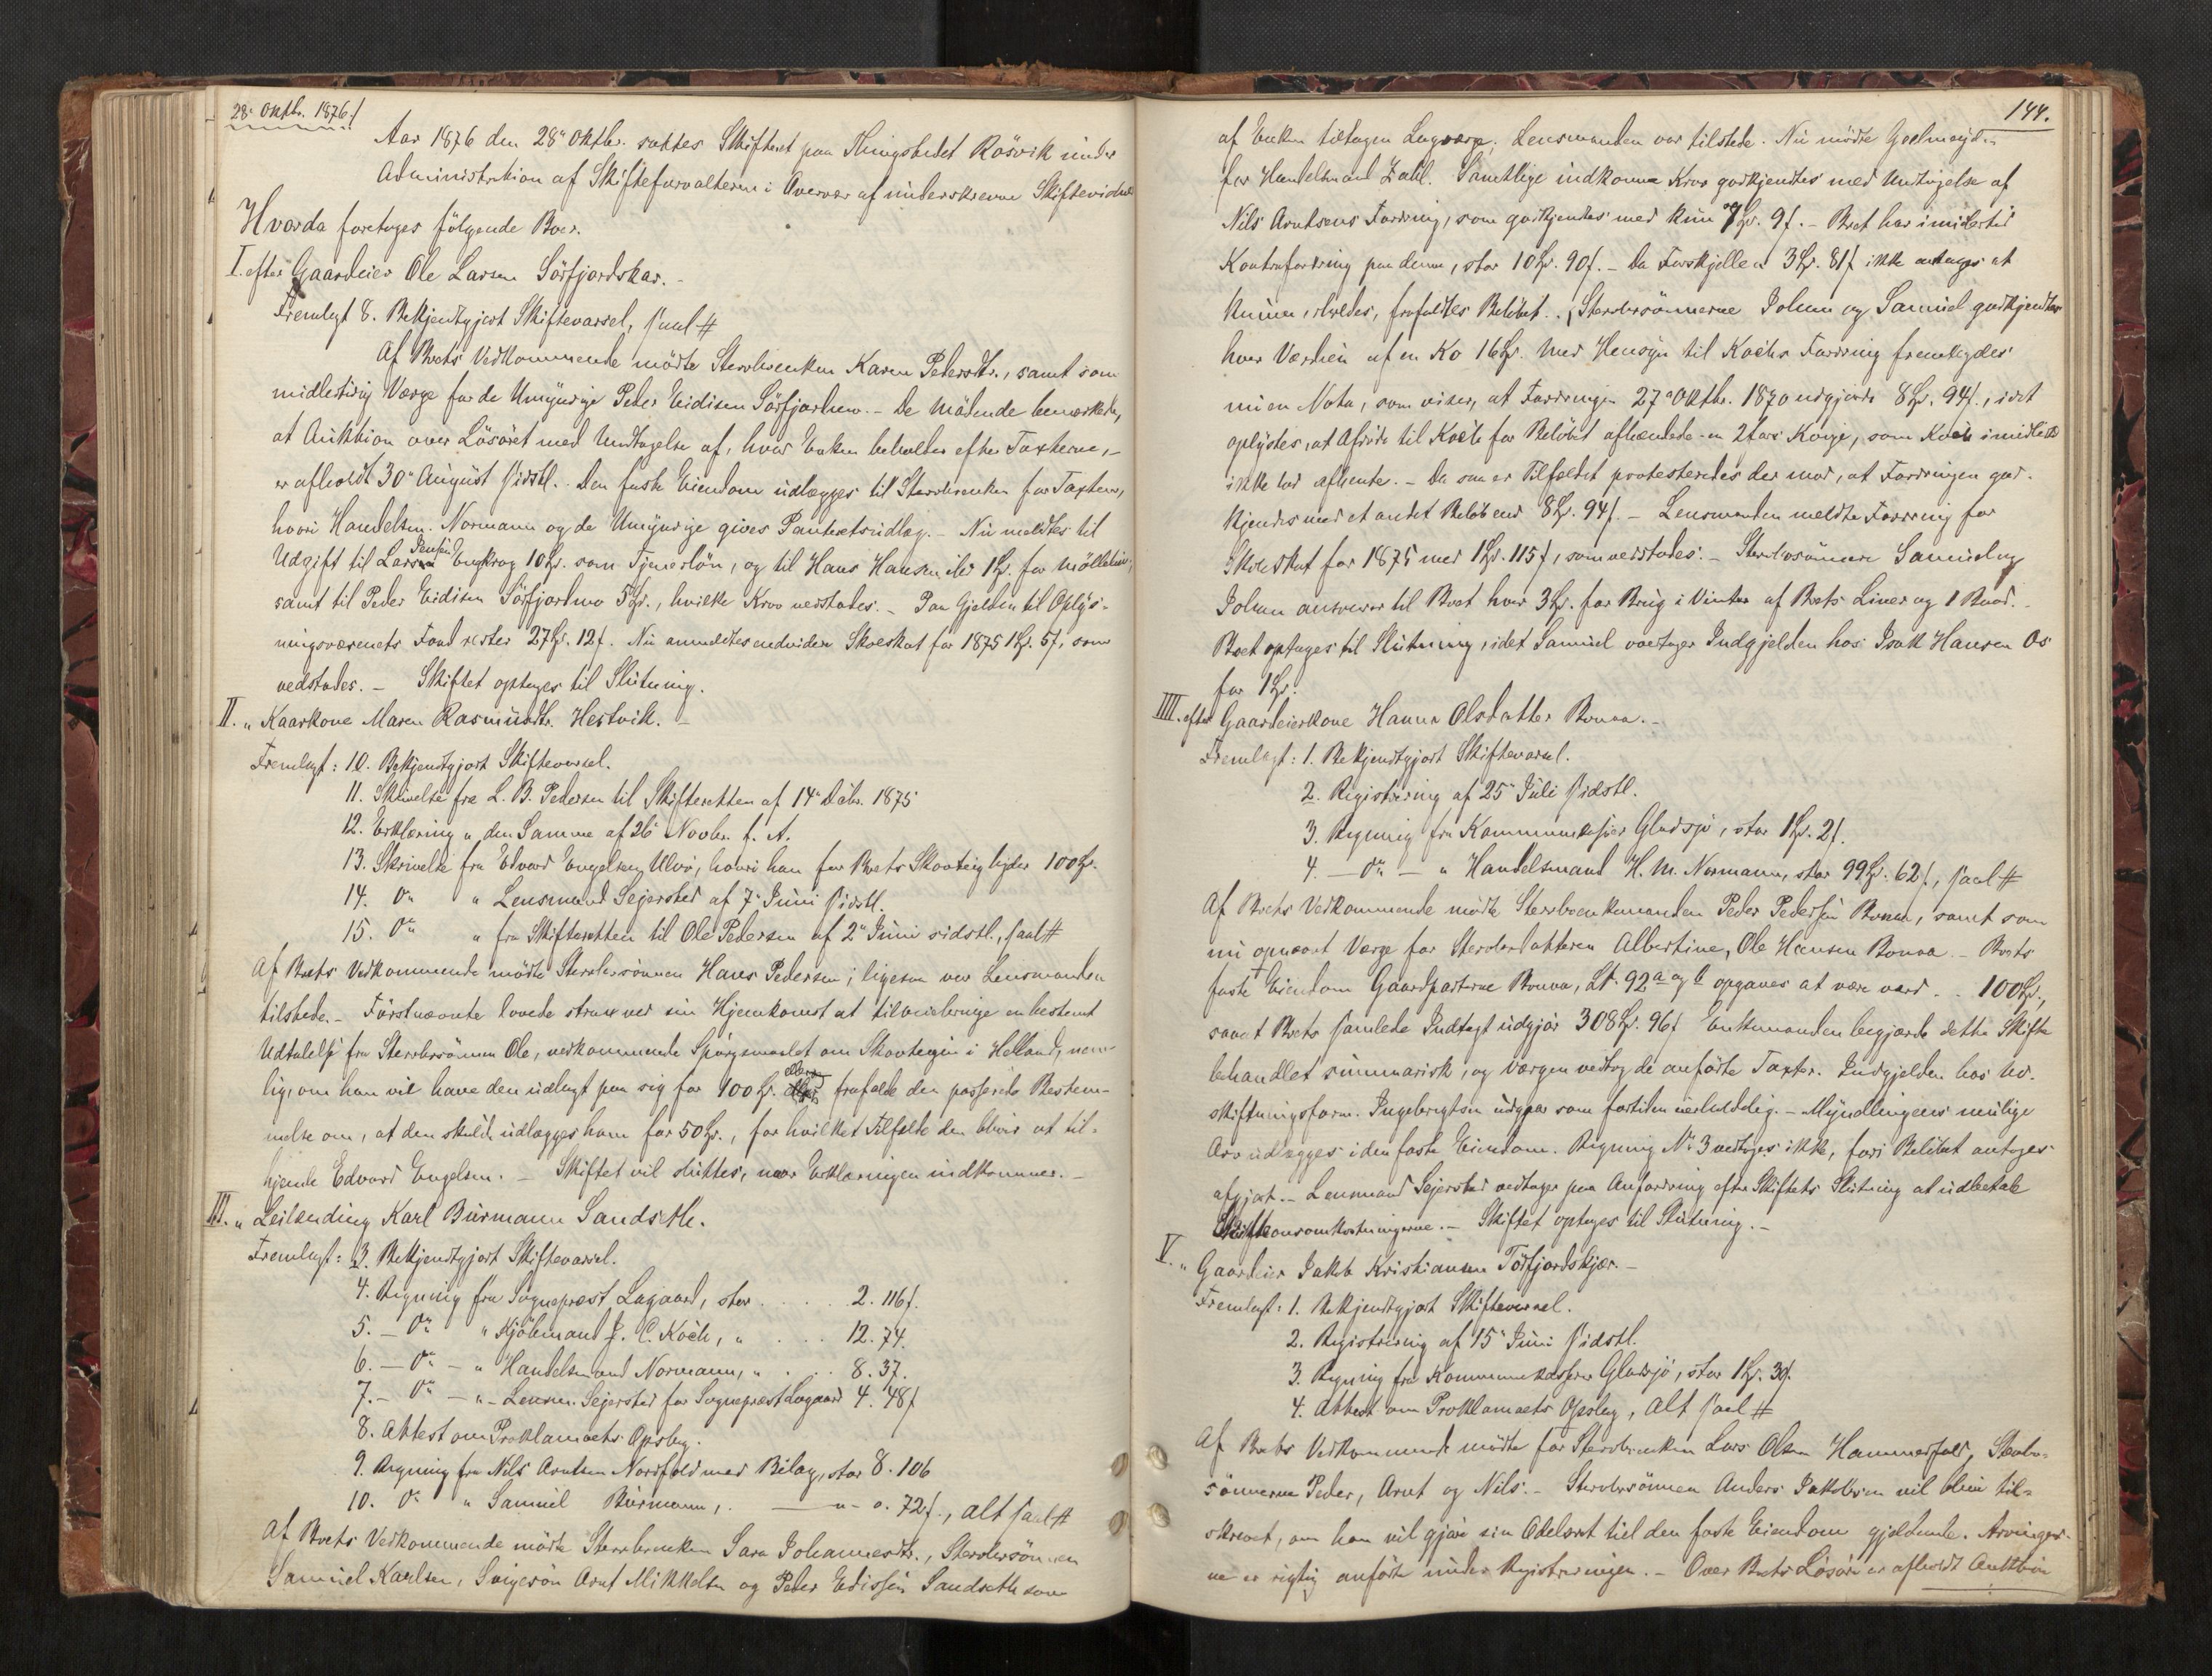 28. Oktbr. 1876.
Aar 1876 den 28de Oktbr. sattes Skifteret paa Thingstedet Rösvik under
Administration af Skifteforvalteren i Overvær af underskrevne Skiftevidner
Hvorda foretoges fölgende Boer.
I. efter Gaardeier Ole Larsen Sörfjordskar.
Fremlagt 8. Bekjendtgjort Skiftevarsel, saal #
Af Boets Vedkommende mödte Stervboenken Karen Pedersdtr., samt som
midlertidig Værge for de Umyndige Peder Eidisen Sörfjordmo. - De Mödende bemærkede,
at Auktion over Lösöret med Undtagelse af, hvad Enken beholder efter Taxterne, -
er afholdt 30te August sidstl. - Den faste Eiendom udlægges til Stervboenken for Taxten,
hvori Handelsm. Normann og de Umyndige gives Panteretsudlæg. - Nu meldtes til
Udgift til Lars Jensen Engkrog 10 Spd. som Tjenerlön, og til Hans Hansen 1 Spd. for Mölleleie,
samt til Peder Eidisen Sörfjordmo 5 Spd., hvilke Krav vedstodes. - Paa Gjelden til Oplys-
ningsvæsenets Fond rester 27 Spd. 12 s. Nu anmeldtes endvidere Skoleskat for 1875 1 Spd. 5 s, som
vedstodes. - Skiftet optoges til Slutning.
II. " Kaarkone Maren Rasmusdtr. Hestvik. -
Fremlagt: 10. Bekjendtgjort Skiftevarsel.
11. Skrivelse fra L. B. Pedersen til Skifteretten af 14de Debr. 1875
12. Erklæring " den Samme af 26de Novbr. f. A.
13. Skrivelse fra Edvard Engelsen Ulvö, hvori han for Boets Skovteig byder 100 Spd.
14. Do " Lensmand Sejersted af 7de Juni sidstl.
15. Do " fra Skifteretten til Ole Pedersen af 2den Juni sidstl., saal #
Af Boets Vedkommende mödte Stervbosönnen Hans Pedersen; ligesom var Lensmanden
tilstede. - Förstnævnte lovede strax ved sin Hjemkomst at tilveiebringe en bestemt
Udtalelse fra Stervbosönnen Ole, vedkommende Spörgsmaalet om Skovteigen i Helland, nem-
lig, om han vil have den udlagt paa sig for 100 Spd. eller frafalde den passerede Bestem-
melse om, at den skulde udlægges ham for 50 Spd., for hvilket Tilfælde den bliver at til-
hjemle Edvard Engelsen. - Skiftet vil sluttes, naar Erklæringen indkommer. -
III. " Leilænding Karl Burmann Sandseth.
Fremlagt: 3. Bekjendtgjort Skiftevarsel.
4. Regning fra Sognepræst Lagaard, stor . . . . 2. 116 s.
5. - Do " Kjöbmand J. C. Koch, " . . . 12. 74.
6. - Do - " Handelsmand Normann, " . . . 8. 37.
7. - Do - " - Lensm. Sejersted for Sognepræst Lagaard 4. 48 s
8. Attest om Proklamaets Opslag.
9. Regning fra Nils Arntsen Nordfold med Bilag, stor 8. 106
10. Do " Samuel Burmann, . - " - 0. 72 s., alt saal #
Af Boets Vedkommende mödte Stervboenken Sara Johannesdtr., Stervbosönnen
Samuel Karlsen, Svigersön Arnt Mikkelsen og Peder Edissen Sandseth som
144.
af Enken tiltagen Laugværge. Lensmanden var tilstede. Nu mödte
for Handelsmand Zahl. Samtlige indkomne Krav godkjendtes med Undtagelse af
Nils Arntsens Fordring, som godkjendtes med kun 7 Spd. 9 s. - Boet har imidlertid
Kontrafordring paa denne, stor 10 Spd. 90 s. - Da Forskjellen 3 Spd. 81 s ikke antages at
kunne erholdes, frafaldtes Belöbet. Stervbosönnerne Johan og Samuel godkjendtes
hver Værdien af en Ko 16 Spd. Med Hensyn til Kochs Fordring fremlagdes
nu en Nota, som viser, at Fordringen 27de Oktbr. 1870 udgjorde 8 Spd. 94 s., idet
oplystes, at Afdöde til Koch for Belöbet afhændede en 2 Aars Kvige, som Koch imidlertid
ikke lod afhente. - Da saa er Tilfældet protesteredes der mod, at Fordringen god-
kjendes med et andet Belöb end 8 Spd. 94 s. - Lensmanden meldte Fordring for
Skoleskat for 1875 med 1 Spd. 115 s, som vedstodes. - Stervbosönnerne Samuel og
Johan ansvarer til Boet hver 3 Spd. for Brug i Vinter af Boets Liner og 1 Baad. -
Boet optoges til Slutning, idet Samuel overtager Indgjelden hos Isak Hansen Os
for 1 Spd.
IIII. efter Gaardeierkone Hanna Olsdatter Bonaa. -
Fremlagt: 1. Bekjendtgjort Skiftevarsel.
2. Registrering af 25de Juli sidstl.
3. Regning fra Kommunekasserer Gladsjö, stor 1 Spd. 2 s.
4. - Do - " Handelsmand H. M. Normann, stor 99 Spd. 62 s., saal #
Af Boets Vedkommende mödte Stervboenkemanden Peder Pedersen Bonaa, samt som
nu opnævnt Værge for Stervbodatteren Albertine, Ole Hansen Bonaa. - Boets
faste Eiendom Gaardparterne Bonaa, L No 92 a og b opgaves at være værd . . 100 Spd.,
samt Boets samlede Indtægt udgjör 308 Spd. 96 s Enkemanden begjærte dette Skifte
behandlet summarisk, og Værgen vedtog de anförte Taxter. Indgjelden hos Ud-
skiftningsform. Ingebrigtsen udgaar som fortiden uerholdelig. - Myndlingens mulige
Arv udlægges i den faste Eiendom. Regning No 3 vedtoges ikke, fordi Belöbet antages
afgjort. - Lensmand Sejersted vedtager paa Anfordring efter Skiftets Slutning at udbetale
Skifteomkostningerne. - Skiftet optoges til Slutning. -
V. " Gaardeier Jakob Kristiansen Törfjordskjær. -
Fremlagt: 1. Bekjendtgjort Skiftevarsel.
2. Registrering af 15de Juni sidstl.
3. Regning fra Kommunekasserer Gladsjö, stor 1 Spd. 39.
4. Attest om Proklamaets Opslag, alt saal #
Af Boets Vedkommende mödte for Stervboenken Lars Olsen Hammerfald, Stervbo-
sönnerne Peder, Arnt og Nils. - Stervbosönnen Anders Jakobsen vil blive til-
skrevet, om han vil gjöre sin Odelsret til den faste Eiendom gjeldende. Arvinger-
ne er rigtig anförte under Registreringen. - Over Boets Lösöre er afholdt Auktion